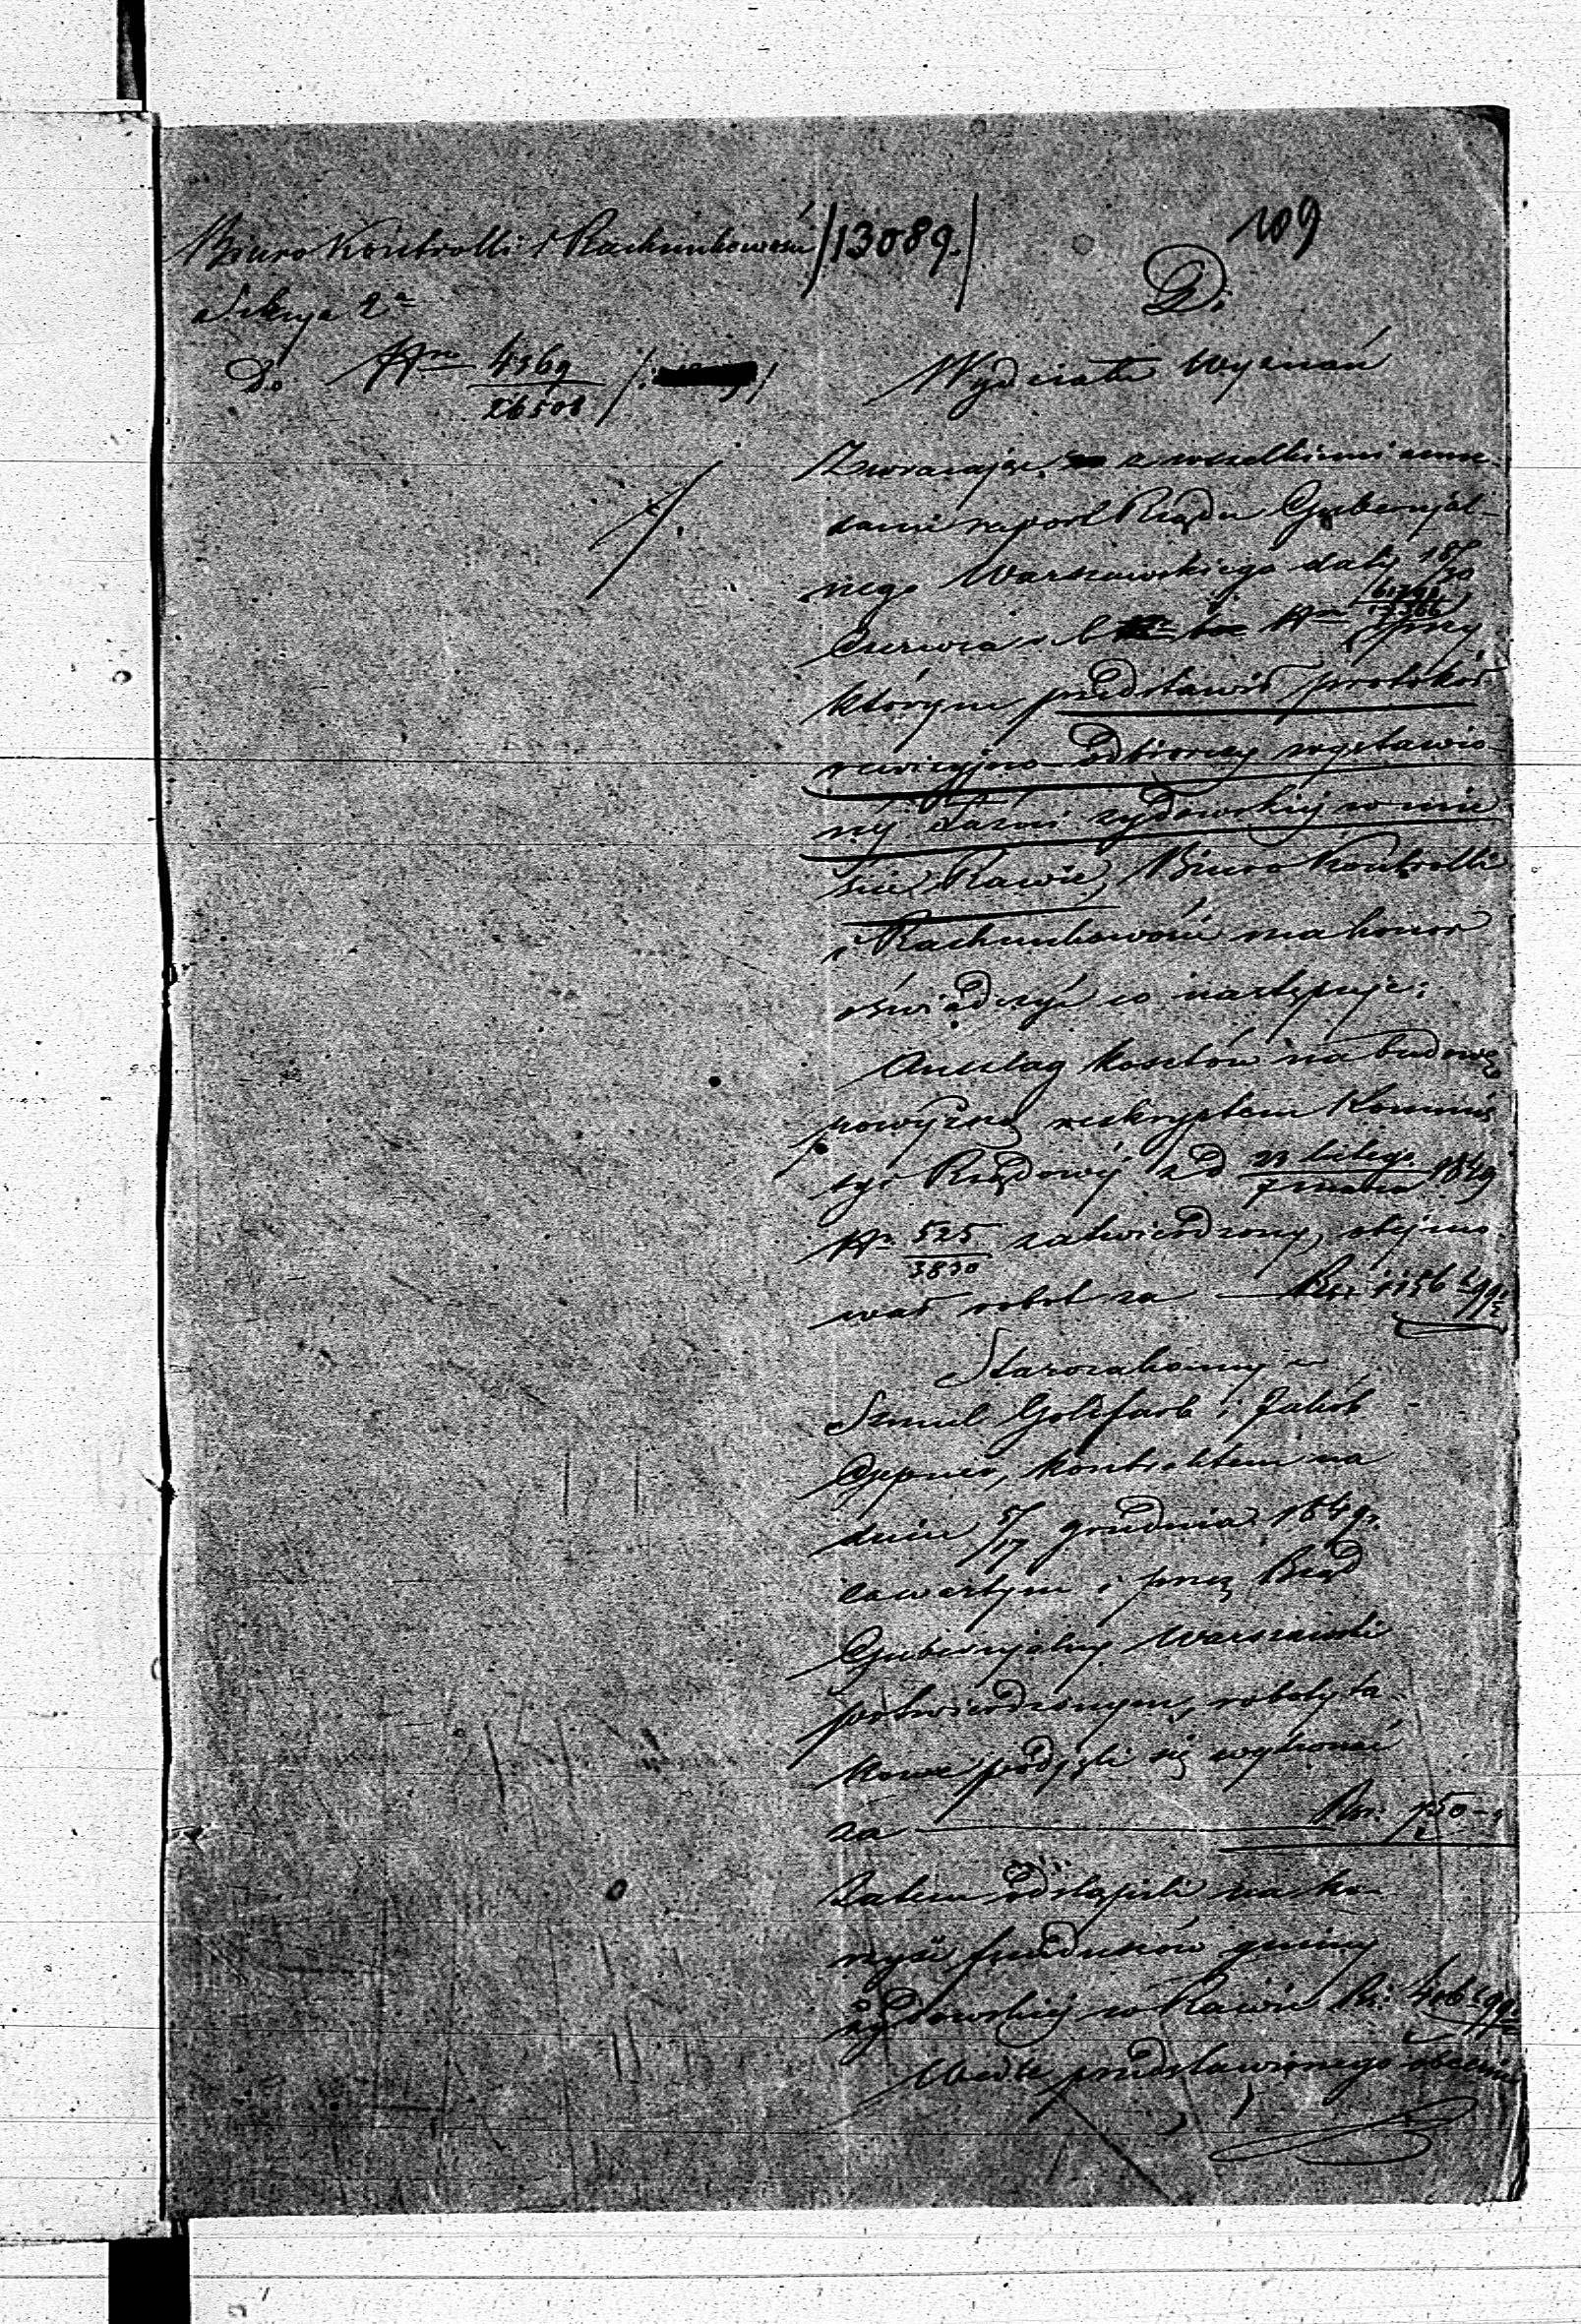 109
Biuro Kontrolli i Rachunkowości /13089./
Sekcya 2ª
Do Nro 4369/26508
Do
Wydziału Wyznań
Zwracając z wszelkiemi anne-
xami raport Rządu Gubernjal-
nego Warszawskiego daty 18/30
Czerwca r. b. Nro przy
którym przedstawił protokół
rewizyjno-odbiorczy wystawio-
néj Łaźni żydowskiéj w mie-
ście Rawie, Biuro Kontrolli
i Rachunkowości ma honor
oświadczyć co następuje:
Anszlag kosztów na budowę
powyższą reskryptem Kommis-
syi Rządowéj z d 23 lutego/7 marca 1849
Nr 525/3830 zatwierdzony, obejmo-
wał robót za Rsr. 1156
Starozakonny
Szmul Goldfarb i Jakób
kontraktem na
dniu 5/17 grudnia 1849 r.
zawartym i przez Rząd
Gubernjalny Warszawski
potwierdzonym, roboty ta-
kowe podjęli się wykonać
za Rsr: 750
Zatem odstąpili na ko-
rzyść funduszów gminy
żydowskiéj w Rawie Rs: 406
Wedle przedstawionego obecnie